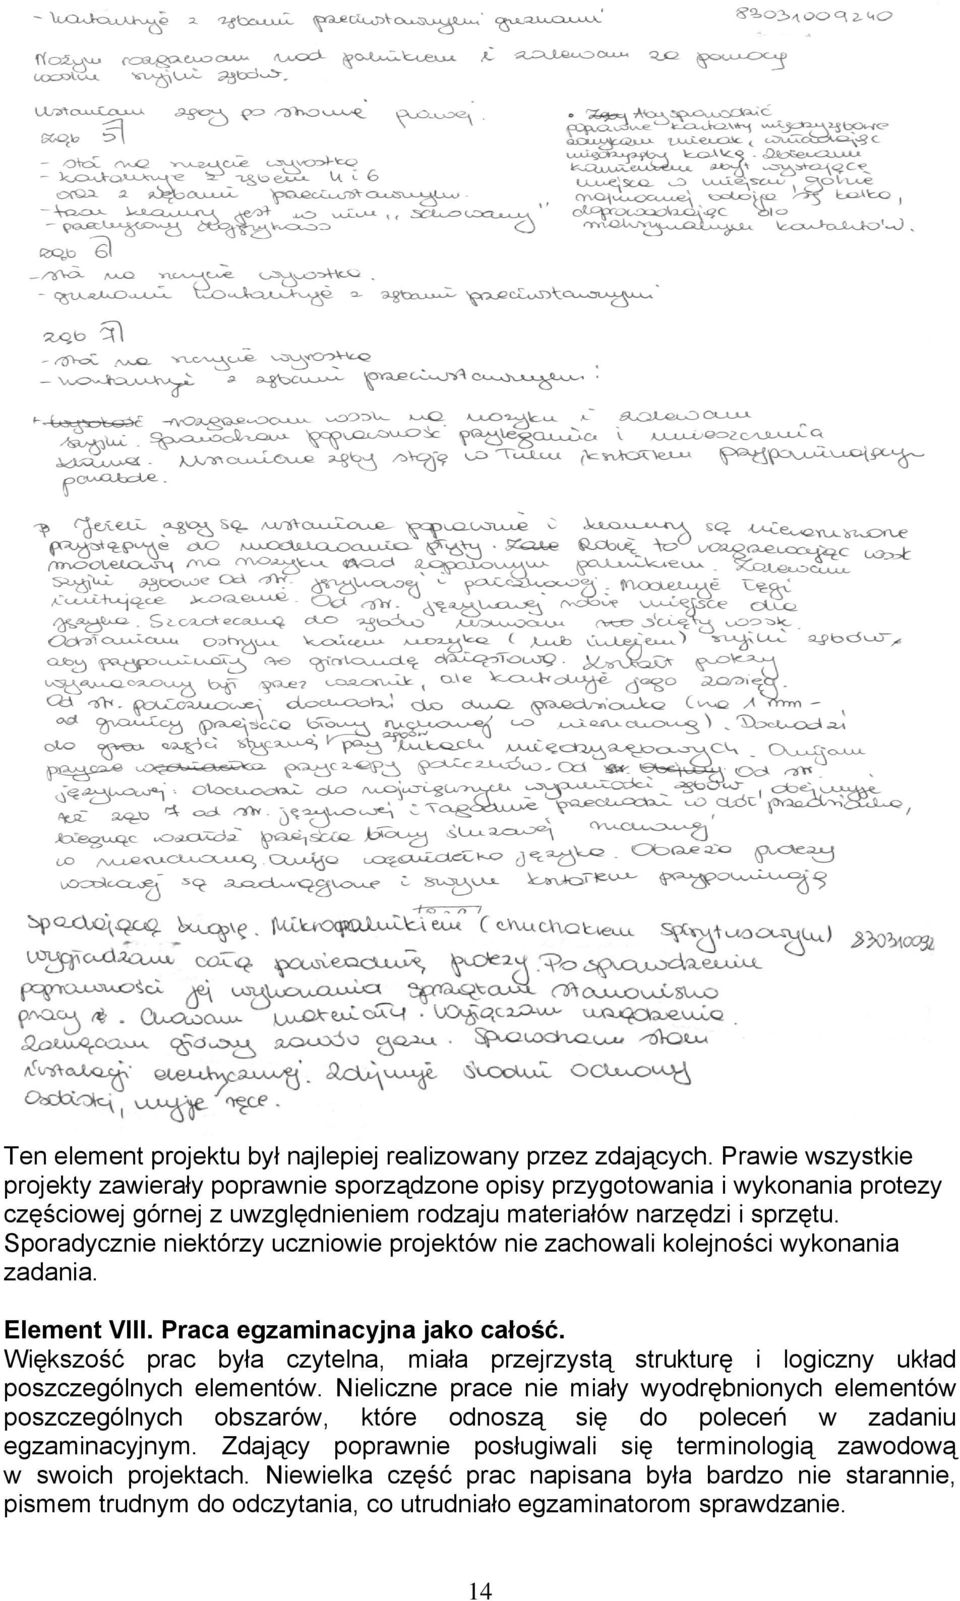 - kontaktuje z zębami przeciwstawnymi guzkami 83031009240
Nożyk rozgrzewam nad palnikiem i zalewam za pomocą
wosku szyjki zębów.
Ustawiam zęby po stronie prawej.
ząb 5
- stoi na szczycie wyrostka
- kontaktuje z zębem 4 i 6
oraz z zębami przeciwstawnymi.
- tzon klamry jest w nim "schowany"
- przechylony dojęzykowo
• Zęby Aby sprawdzić
poprawne kontakty międzyzębowe
zamykam zwierak, wkładając
międzyzęby kalkę. Zbieram
kamieniem zbyt wystające
miejsca w miejscu, gdzie
najmocniej odbija się kalka,
doprowadzając do
maksymalnych kontaktów.
ząb 6
- stoi na szczycie wyrostka.
- guzkami kontaktuje z zębami przeciwstawnymi
ząb 7
- stoi na szczycie wyrostka
- kontaktuje z zębami przeciwstawnymi.
rozgrzewam wosk na nożyku i zalewam
szyjki. Sprawdzam poprawność przylegania i umieszczenia
klamer. Ustawione zęby stoją w łuku, kształtem przypominającym
parabolę.
Jeżeli zęby są ustawione poprawnie i klamry są nienaruszone
przystępuję do modelowania płyty. Robię to rozgrzewając wosk
modelowy na nożyku nad zapalonym palnikiem. Zalewam
szyjki zębowe od str. językowej i policzkowej. Modeluję łęgi
imitujące korzenie. Od str. językowej robię miejsce dla
języka. Szczoteczką do zębów usuwam ścięty wosk.
Odsłaniam ostrym końcem nożyka (lub ) szyjki zębów,
aby przypominały to girlandę dziąsłową. Kształt protezy
wyznaczony był przez wzornik, ale kontroluję jego zasięg.
Od str. policzkowej dochodzi do dna przedsionka (na 1 mm -
od granicy przejścia błony ruchomej w nieruchomą). Dochodzi
do części stycznej przy łukach zębów międzyzębowych. Omijam
przyczepy policzków. Od str.
językowej: dochodzi do największych wypukłości zębów, obejmuje
też ząb 7 od str. językowej i łagodnie przechodzi w dół przedsionka,
biegnąc wzdłuż przejścia błony śluzowej ruchomej
w nieruchomą omija wędzidełko języka. Obrzeża protezy
woskowej są zaokrąglone i swym kształtem przypominają
spadającą kroplę. Mikropalnikiem (chuchakiem spirytusowym) 830310092
wygładzam całą powierzchnię protezy. Po sprawdzeniu
poprawności jej wykonania sprzątam stanowisko
pracy. Chowam materiały. Wyłączam urządzenia.
Zakręcam główny zawór gazu. Sprawdzam stan
instalacji elektrycznej. Zdejmuję środki ochrony
osobistej, myję ręce.
Ten element projektu był najlepiej realizowany przez zdających. Prawie wszystkie
projekty zawierały poprawnie sporządzone opisy przygotowania i wykonania protezy
częściowej górnej z uwzględnieniem rodzaju materiałów narzędzi i sprzętu.
Sporadycznie niektórzy uczniowie projektów nie zachowali kolejności wykonania
zadania.
Element VIII. Praca egzaminacyjna jako całość.
Większość prac była czytelna, miała przejrzystą strukturę i logiczny układ
poszczególnych elementów. Nieliczne prace nie miały wyodrębnionych elementów
poszczególnych obszarów, które odnoszą się do poleceń w zadaniu
egzaminacyjnym. Zdający poprawnie posługiwali się terminologią zawodową
w swoich projektach. Niewielka część prac napisana była bardzo nie starannie,
pismem trudnym do odczytania, co utrudniało egzaminatorom sprawdzanie.
14